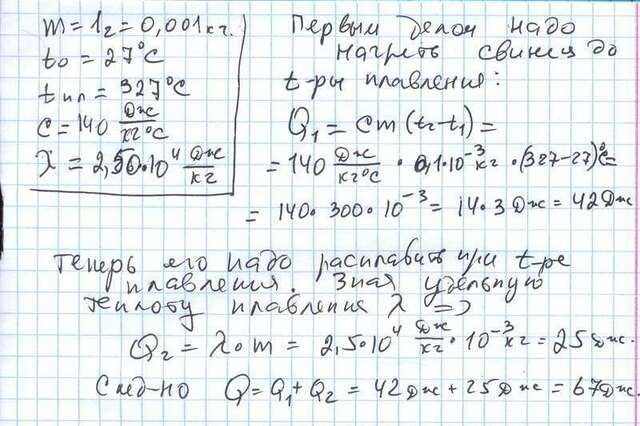 m = 1г = 0,001 кг.
t₀ = 27°C
tпл = 327°C
C = 140 Дж/кг°C
λ = 2,50·10⁴ Дж/кг
Первым делом надо
нагреть свинец до
t-ры плавления:
Q₁ = cm(t₂-t₁) =
= 140 Дж/кг°C · 0,1·10⁻³кг · (327-27)°C =
= 140·300·10⁻³ = 14·3 Дж = 42 Дж
Теперь его надо расплавить при t-ре
плавления. Зная удельную
теплоту плавления λ =>
Q₂ = λ·m = 2,5·10⁴ Дж/кг · 10⁻³кг = 25 Дж.
След-но Q = Q₁ + Q₂ = 42 Дж + 25 Дж = 67 Дж.